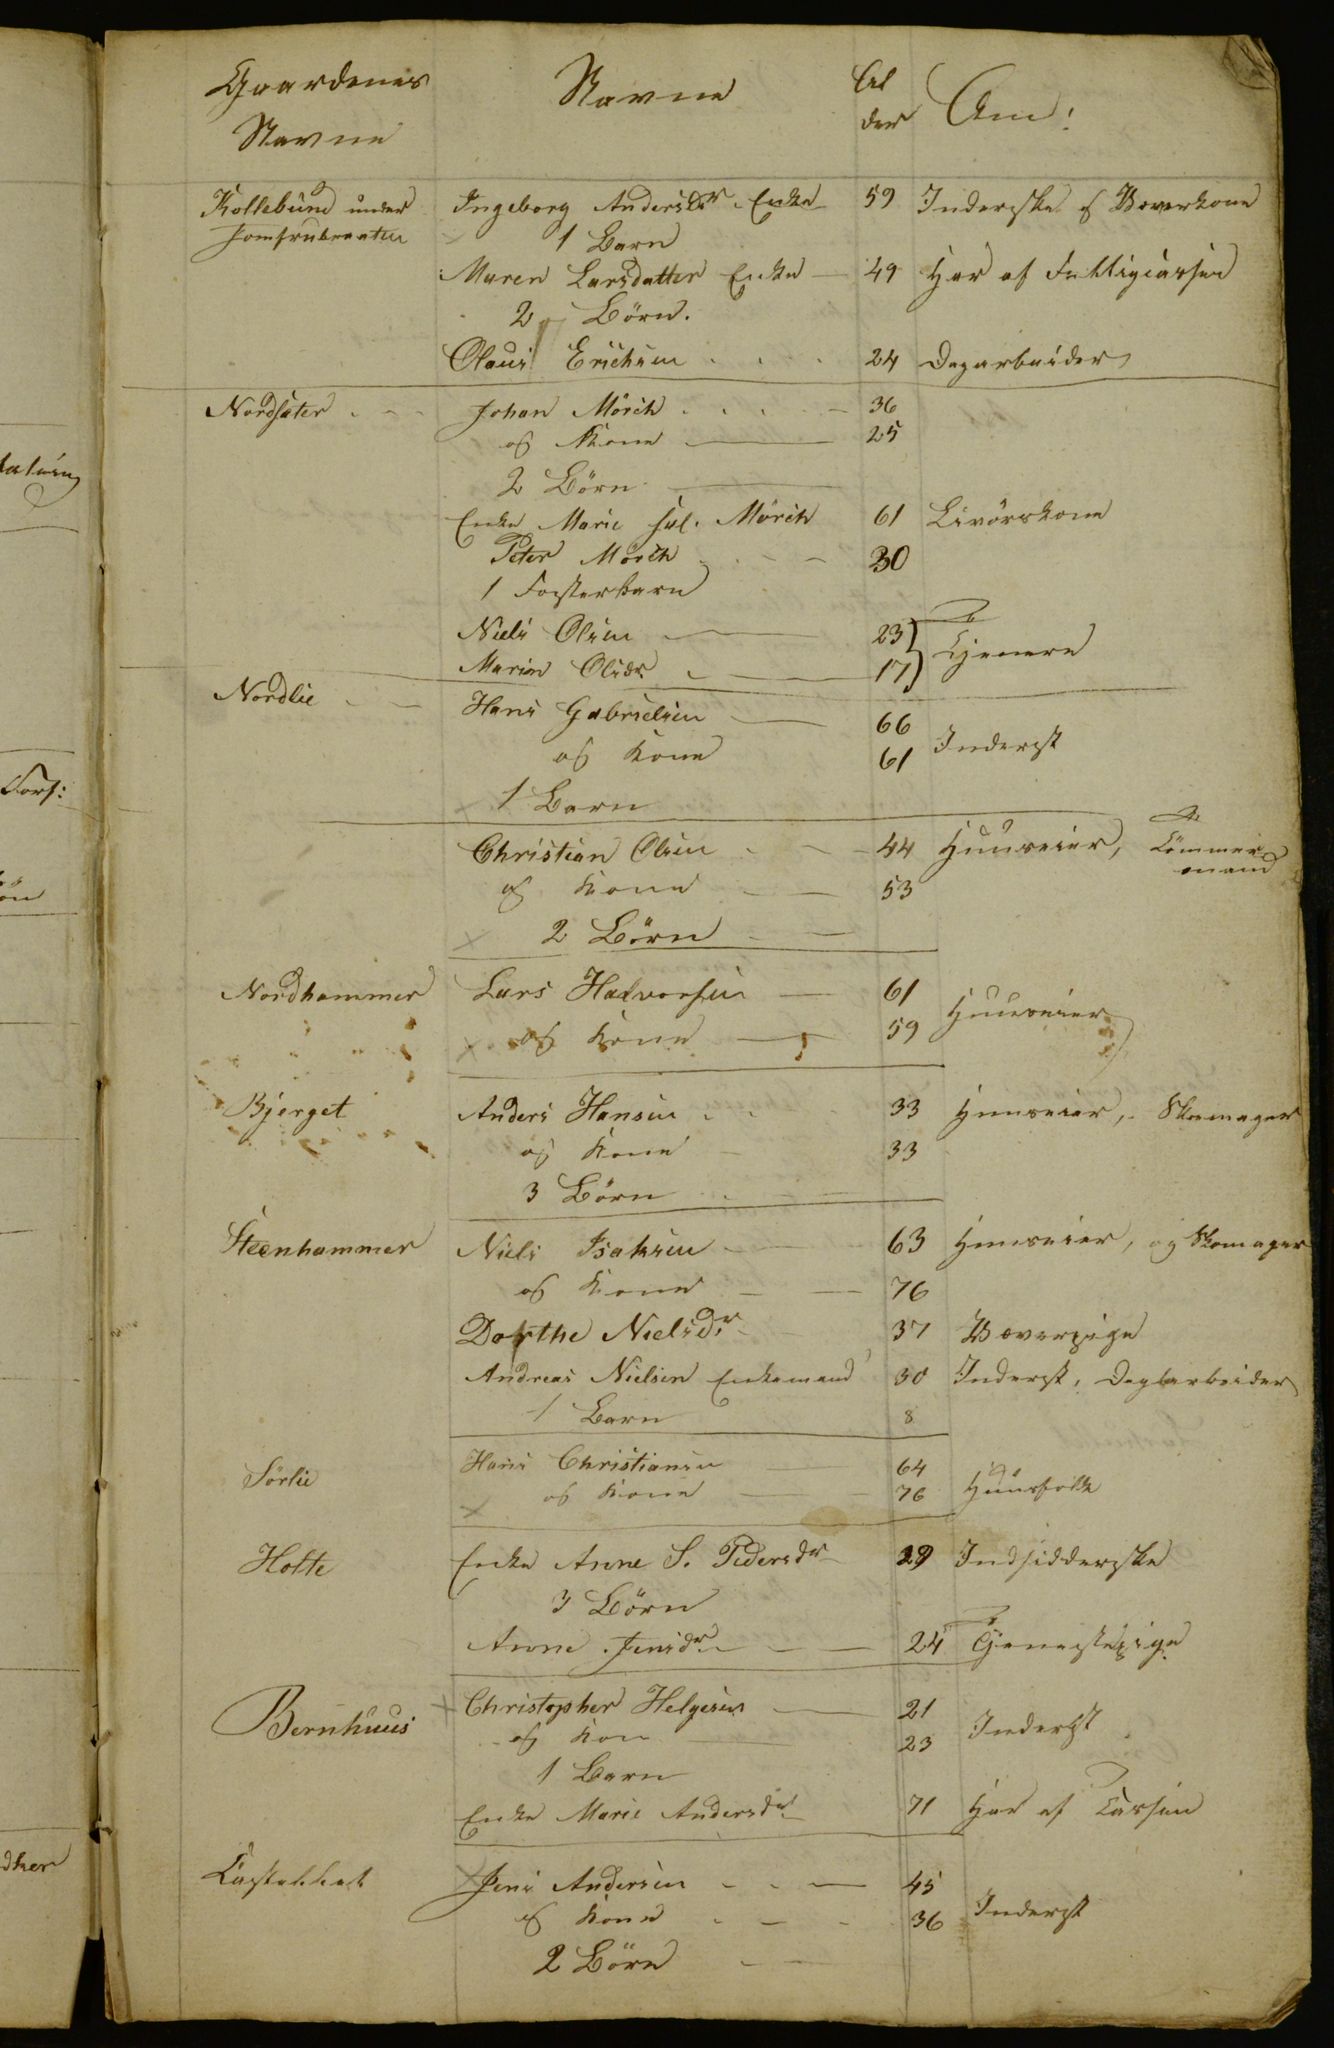 Gaardenes Navne | Navne | Al der | Anm:
Kollebund under | Ingeborg Andersdr Enke | 59 | Inderske og Væverkone
Jomfrubraaten | 1 Barn
Maren Larsdatter Enke — | 49 | Har af Fattigcassen
2 Börn.
Olaus Erichsen . . . | 24 | Dagarbeider
Nordsäter . - - | Johan Mörch . . . . - | 36
og Kone — | 25
2 Börn —
Enke Marie sal. Mörch | 61 | Livörskone
Peter Mörch . - - | 30
1 Fosterbarn
Niels Olsen — | 23 } Tjenere
Maren Olsdr — | 17 }
Nordlie - - | Hans Gabrielsen — | 66
og Kone | 61 | Inderst
× 1 Barn
Christian Olsen . - - | 44 | Huuseier, Tömmer
og Kone - — | 53 | mand
× 2 Börn - —
Nordhammer | Lars Halvorsen — | 61 | Huuseier
× og Kone — | 59
Bjerget | Anders Hansen . . | 33 | Huuseier, Skomager
og Kone - | 33
3 Börn . - —
Steenhammer | Niels Isaksen - — | 63 | Huuseier, og Skomager
og Kone - — | 76
Dorthe Nielsdr - | 37 | Væverpige
Andreas Nielsen Enkemand | 30 | Inderst, Dagarbeider
1 Barn | 8
Sörlie | Hans Christiansen — | 64 | Huusfolk
× og Kone — | 76
Holte | Enke Anne S. Pedersdr | 29 | Indsidderske
3 Börn
Anne Jensdr - — | 24 | Tjenestepige
Bernhuus | + Christopher Helgesen — | 21 | Inderst
og Kone — | 23
1 Barn
Enke Marie Andersdr | 71 | Har af Cassen
× Jens Andersen - . — | 45 | Inderst
og Kone . - . | 36
2 Börn - —